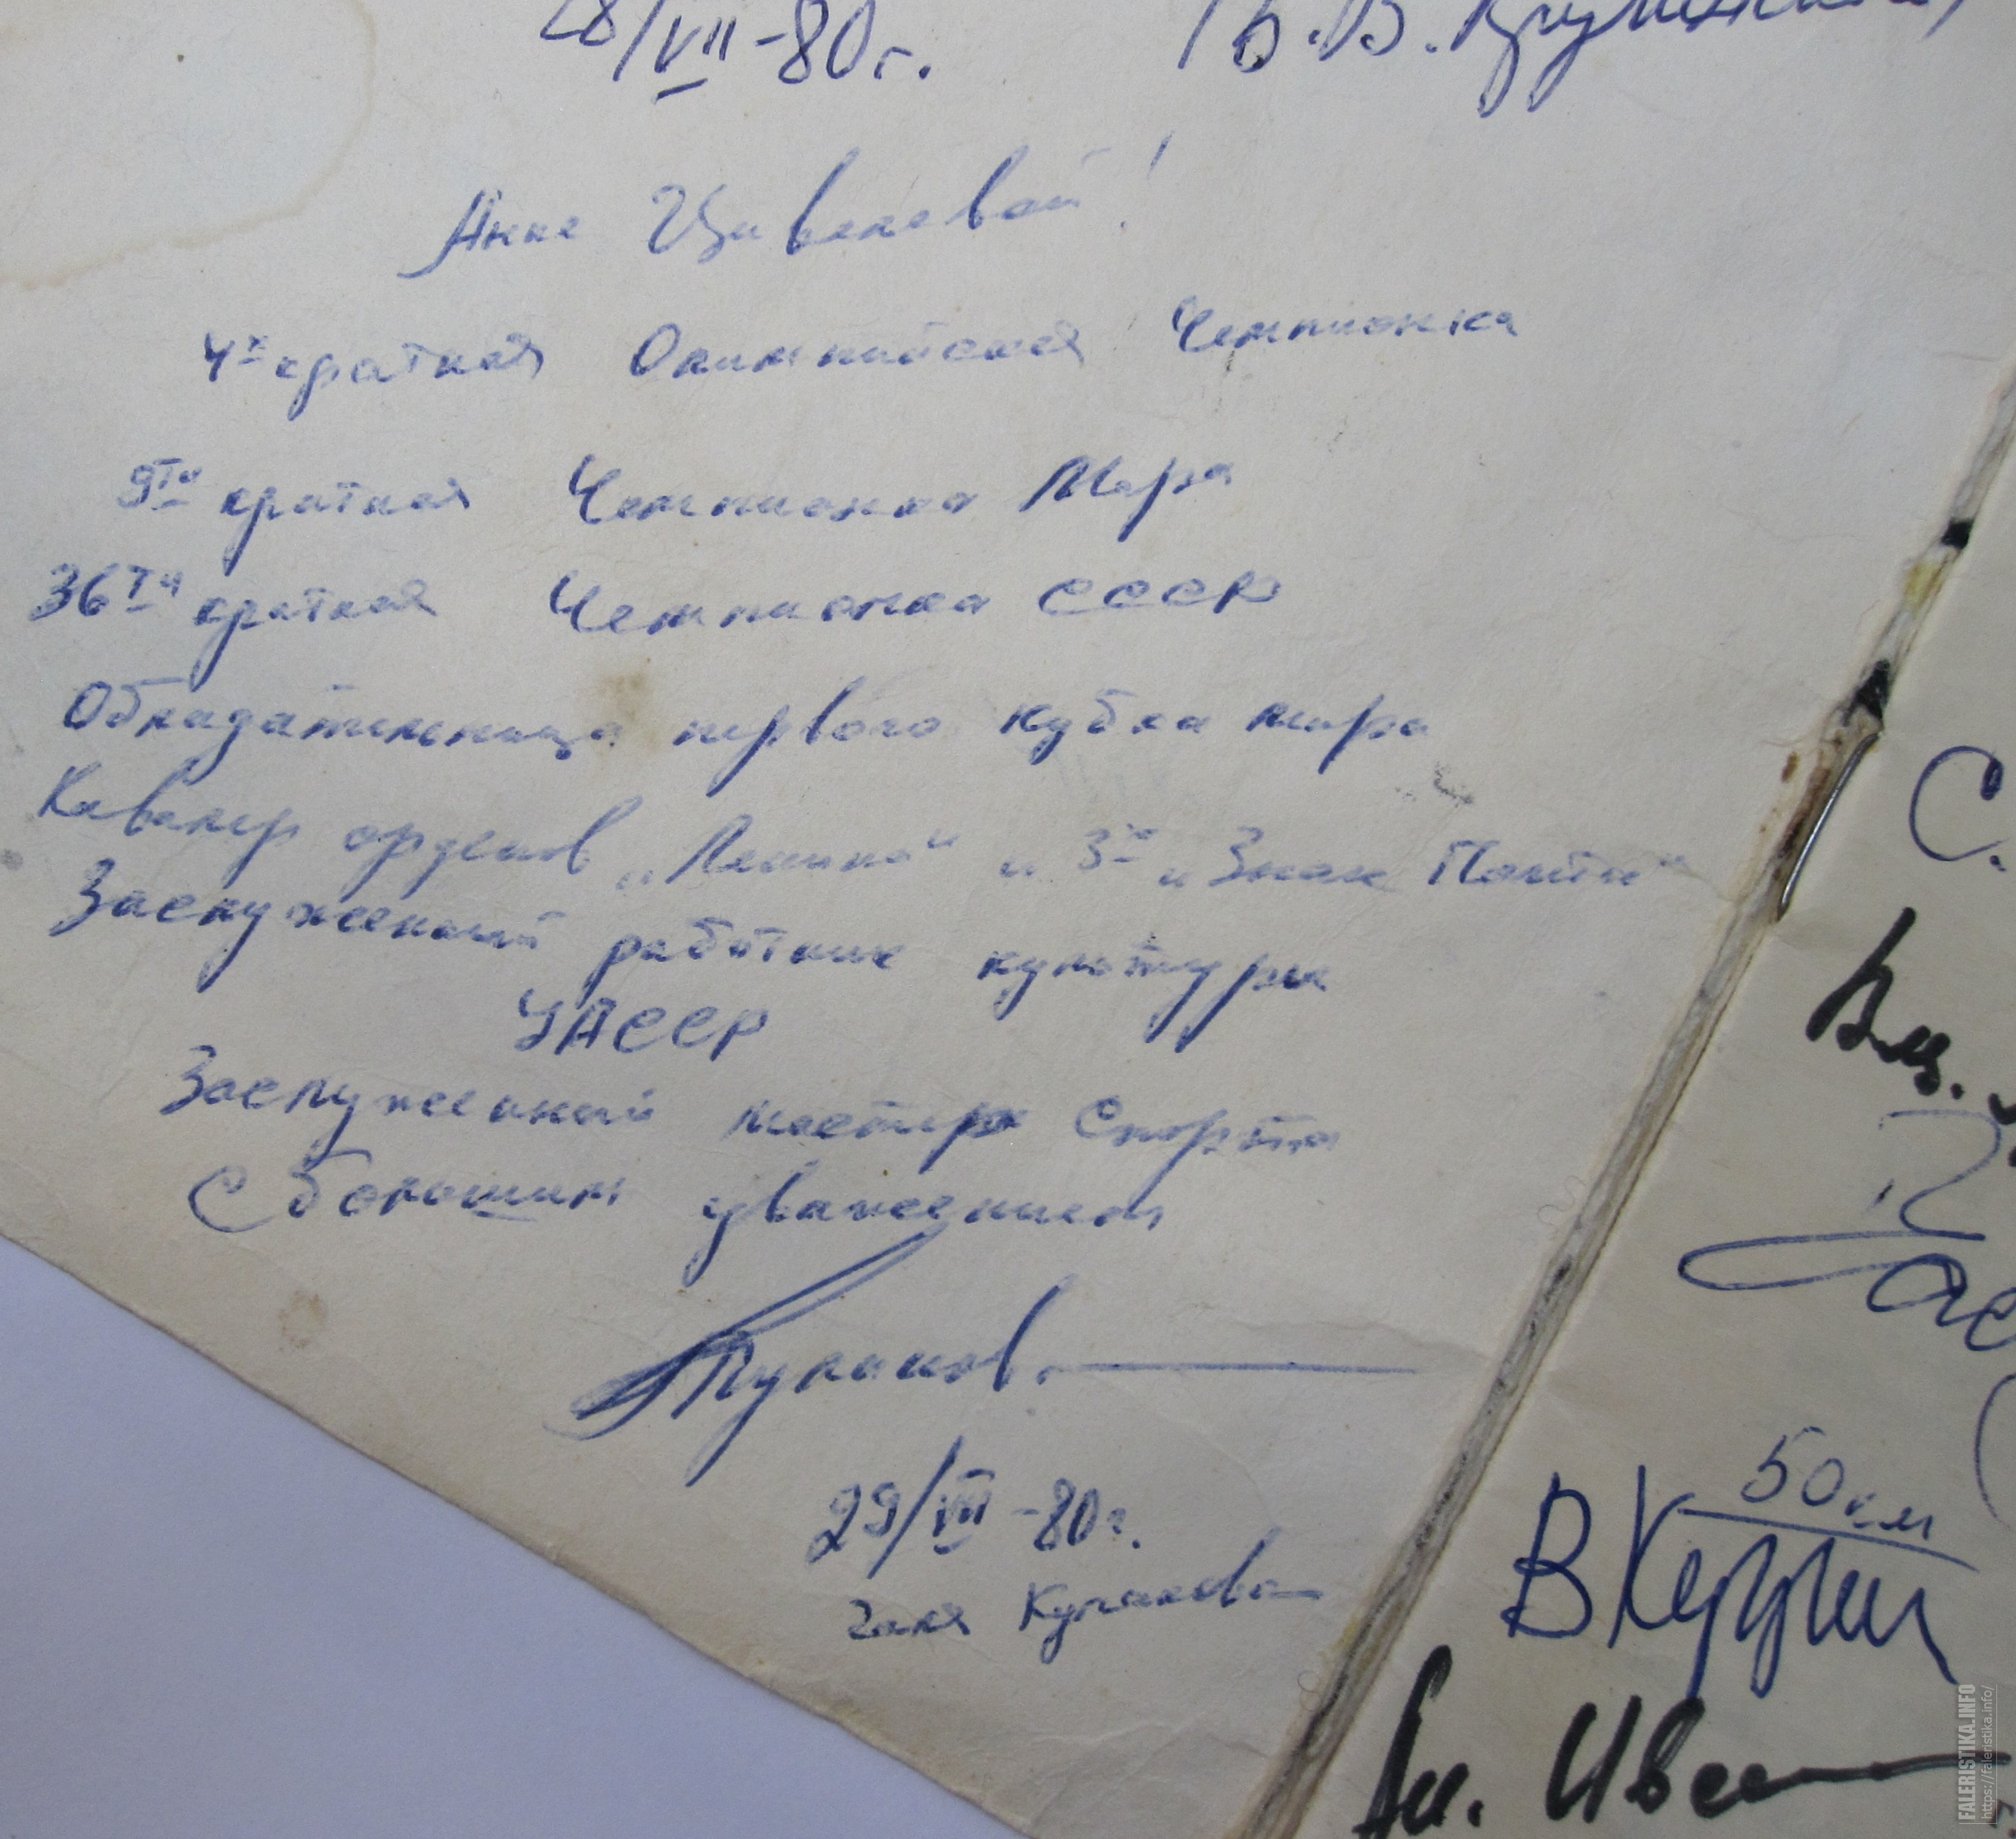 28/VII-80г.
Анне Цивилевой!
4х кратная Олимпийская Чемпионка
9ти кратная Чемпионка Мира
36ти кратная Чемпионка СССР
Обладательница первого кубка мира
Кавалер орденов „Ленина" и 3х „Знак Почёта"
Заслуженный работник культуры
УАССР
Заслуженный мастер Спорта
С большим уважением
Кулаков
29/VII-80г.
Галя Кулакова
С.
Вл.
50км
FALERISTIKA.INFO
https://faleristika.info/